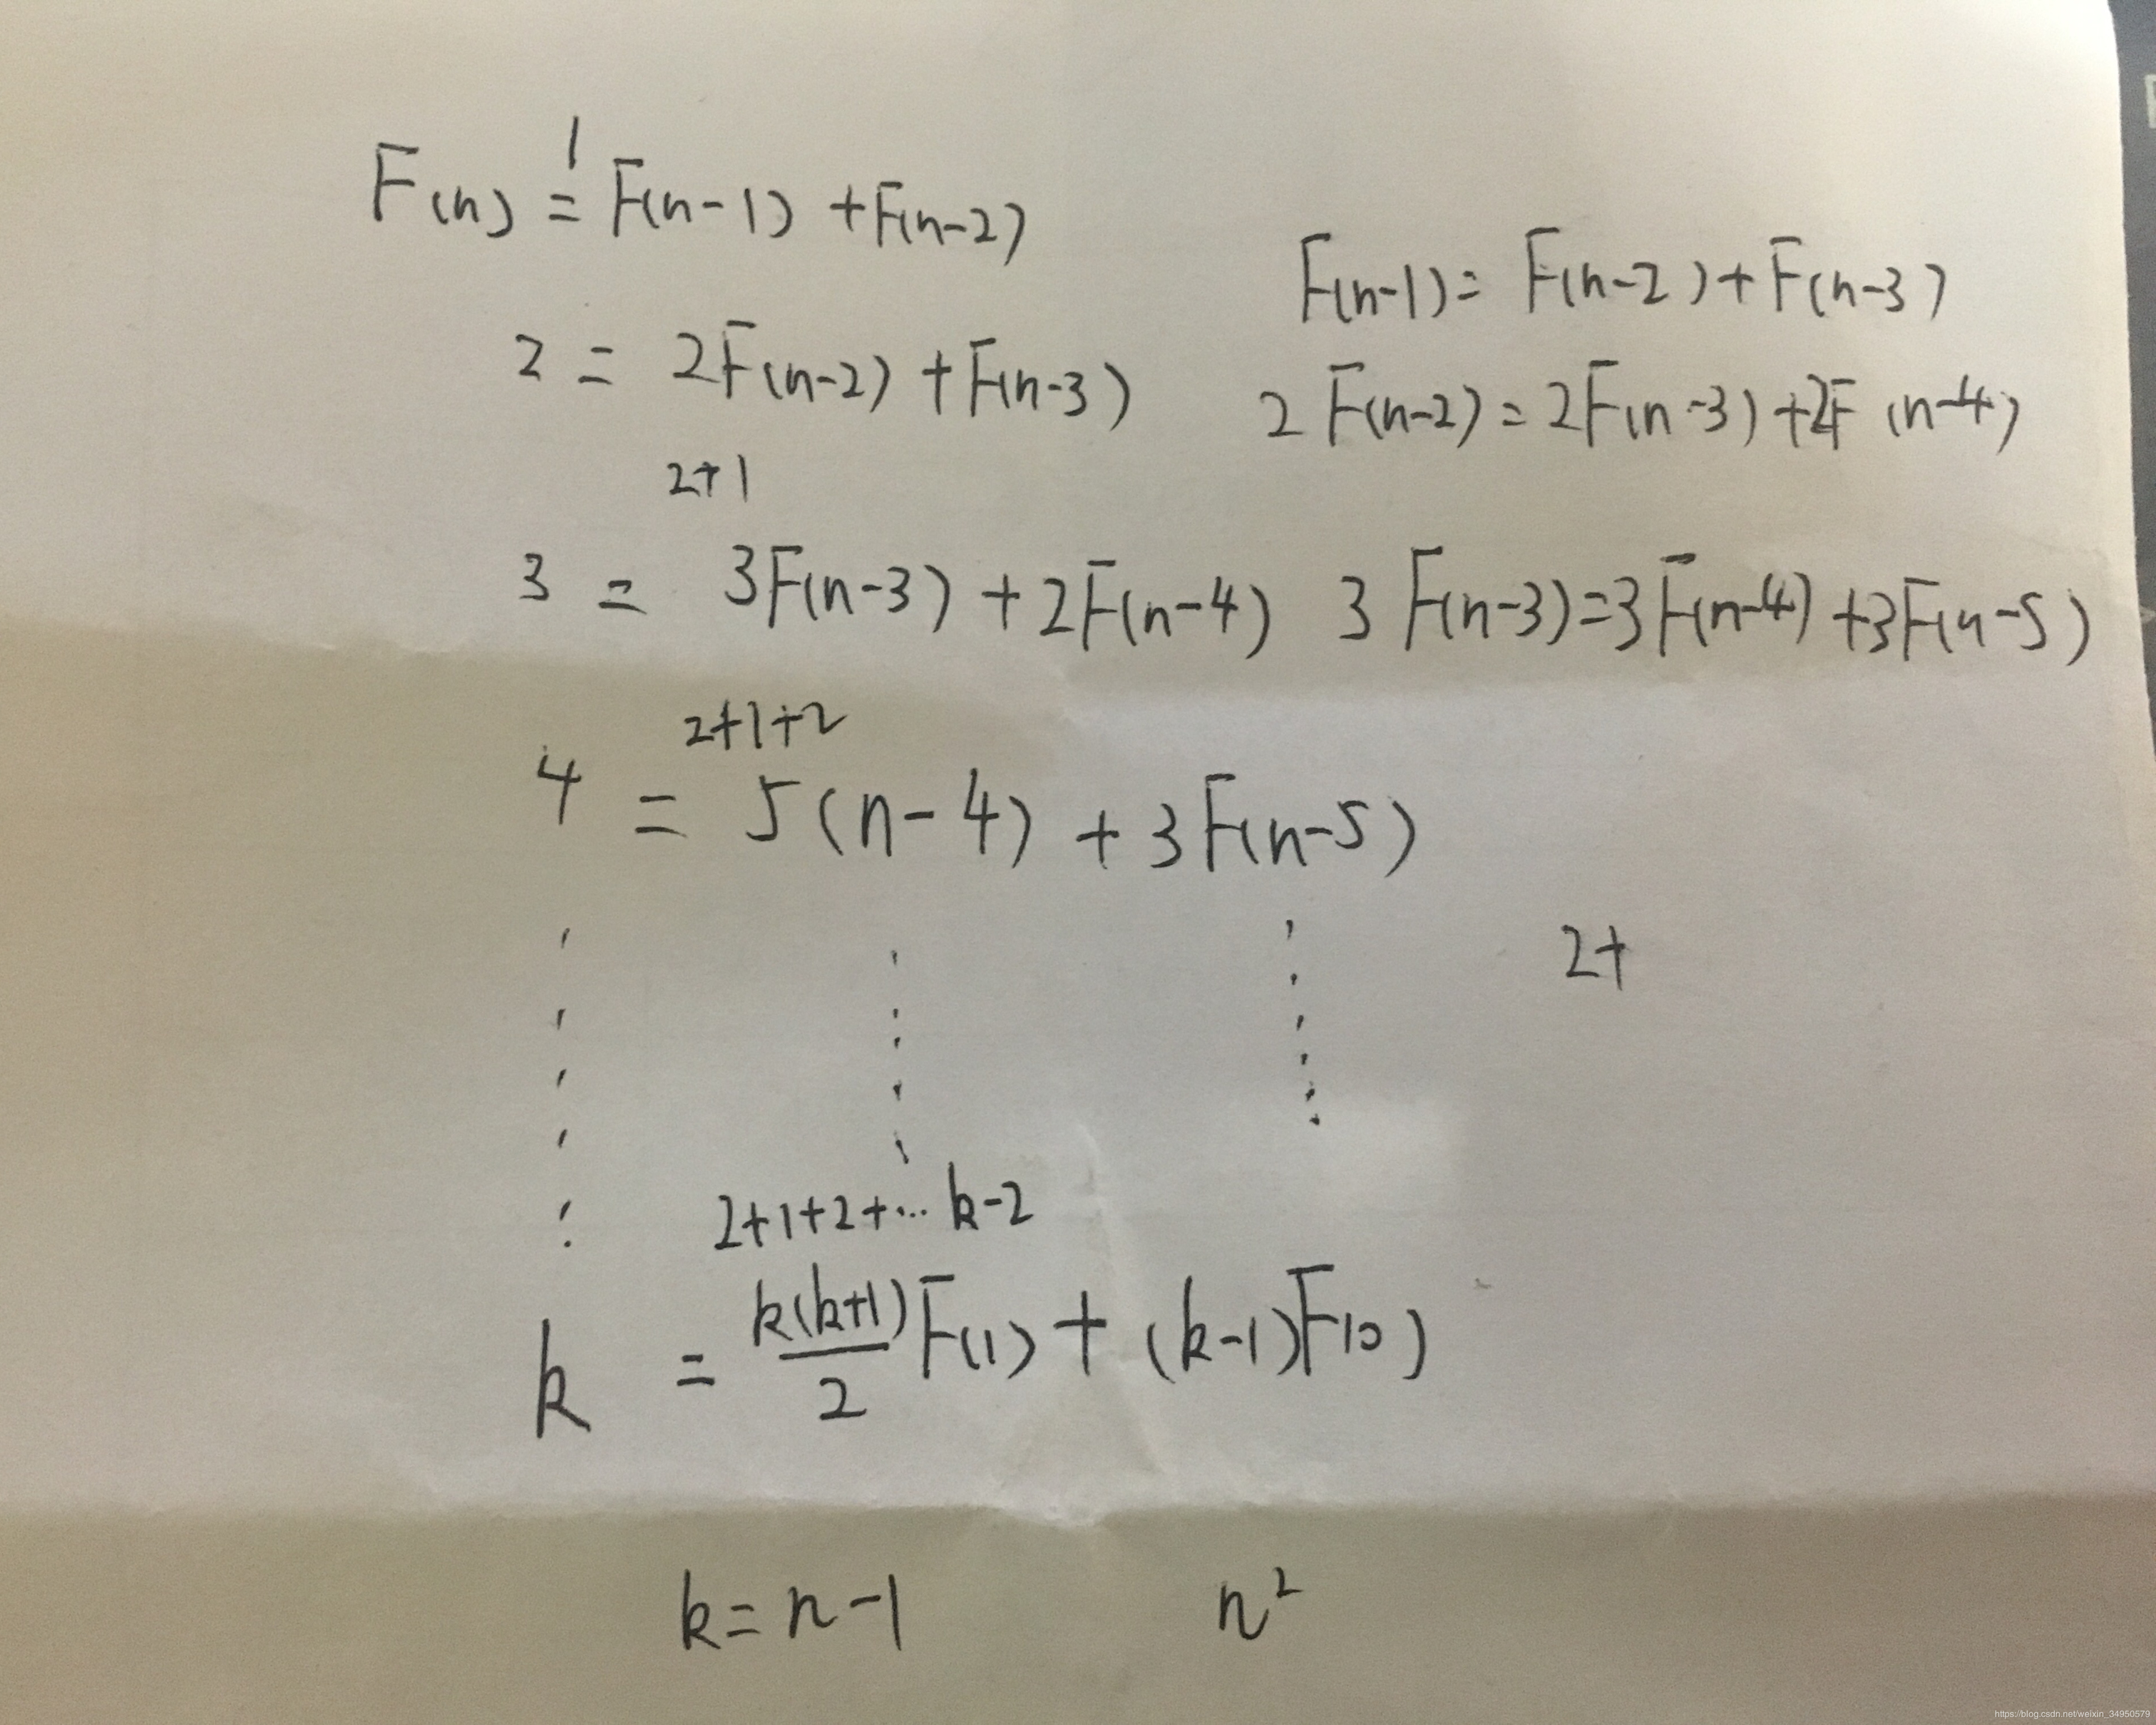 1
F(n) = F(n-1) + F(n-2)
F(n-1) = F(n-2) + F(n-3)
2 = 2F(n-2) + F(n-3)
2F(n-2) = 2F(n-3) + 2F(n-4)
2+1
3 = 3F(n-3) + 2F(n-4) 3F(n-3) = 3F(n-4) + 3F(n-5)
2+1+2
4 = 5(n-4) + 3F(n-5)
2+
2+1+2+... k-2
k = k(k+1)/2 F(1) + (k-1)F(0)
k = n-1 n²
https://blog.csdn.net/weixin_34950579